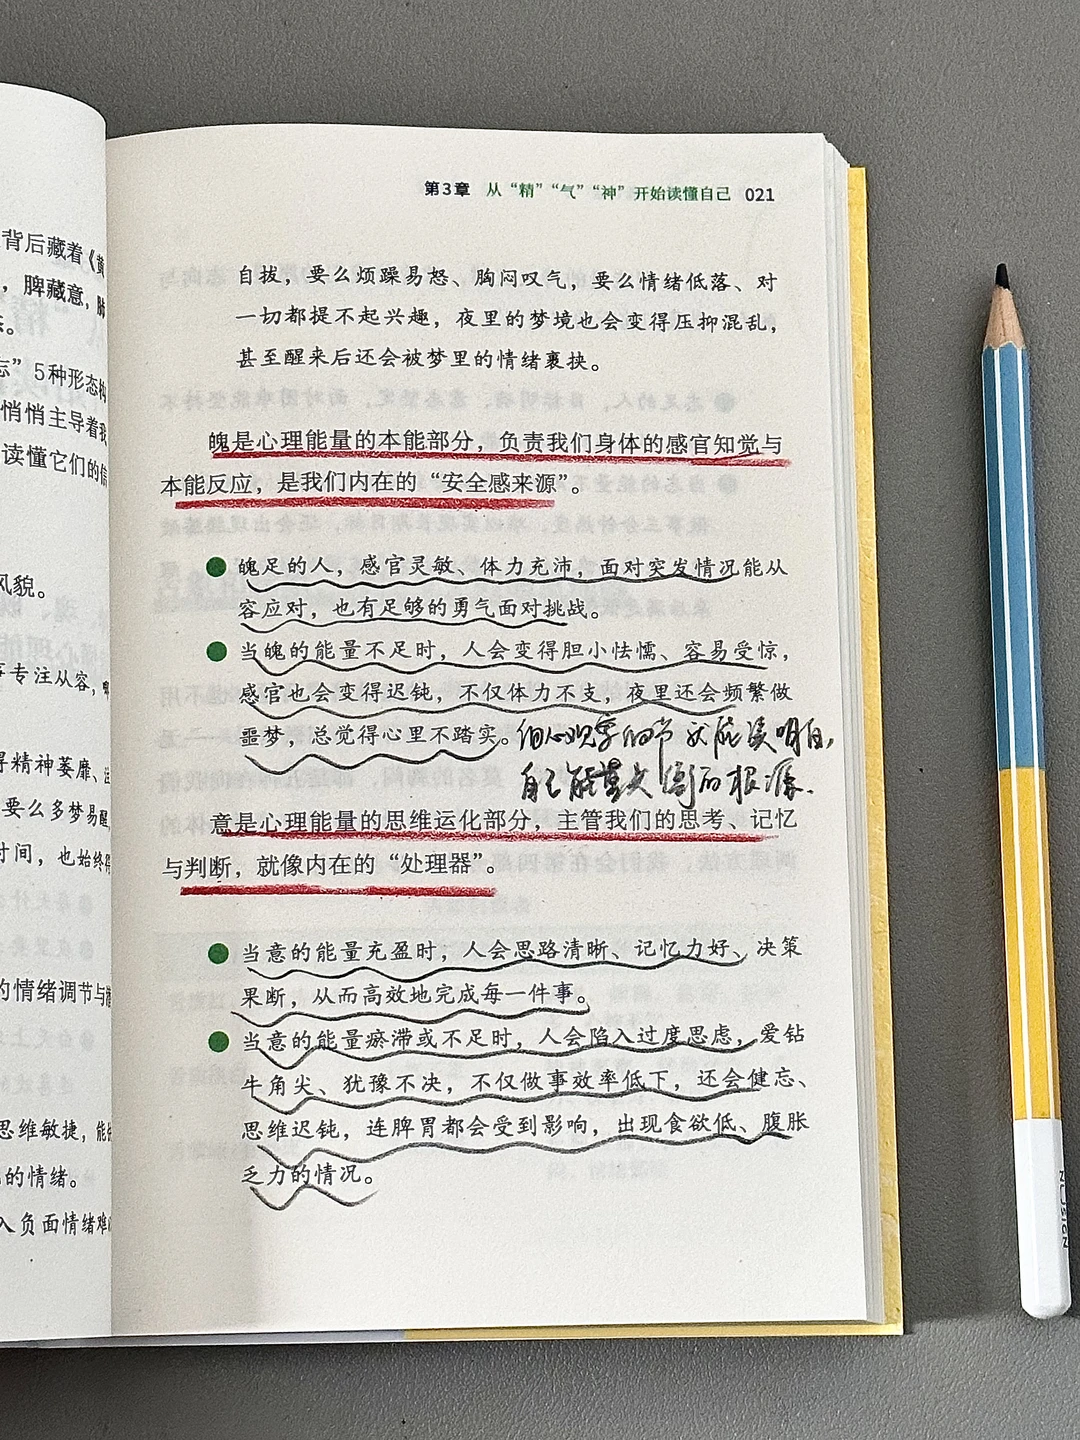 背后藏着《黄
，脾藏意，肺
忘”5种形态构
悄悄主导着我
读懂它们的信
风貌。
专注从容，
得精神萎靡、
要么多梦易醒，
时间，也始终得
的情绪调节与
思维敏捷，能
的情绪。
入负面情绪难
第3章 从“精”“气”“神”开始读懂自己 021
自拔，要么烦躁易怒、胸闷叹气，要么情绪低落、对
一切都提不起兴趣，夜里的梦境也会变得压抑混乱，
甚至醒来后还会被梦里的情绪裹挟。
魄是心理能量的本能部分，负责我们身体的感官知觉与
本能反应，是我们内在的“安全感来源”。
魄足的人，感官灵敏、体力充沛，面对突发情况能从
容应对，也有足够的勇气面对挑战。
当魄的能量不足时，人会变得胆小怯懦、容易受惊，
感官也会变得迟钝，不仅体力不支，夜里还会频繁做
噩梦，总觉得心里不踏实。
细心观察细节 就能读明白，
自己能量失衡的根源.
意是心理能量的思维运化部分，主管我们的思考、记忆
与判断，就像内在的“处理器”。
当意的能量充盈时，人会思路清晰、记忆力好、决策
果断，从而高效地完成每一件事。
当意的能量瘀滞或不足时，人会陷入过度思虑，爱钻
牛角尖、犹豫不决，不仅做事效率低下，还会健忘、
思维迟钝，连脾胃都会受到影响，出现食欲低、腹胀
乏力的情况。
NUSIGN